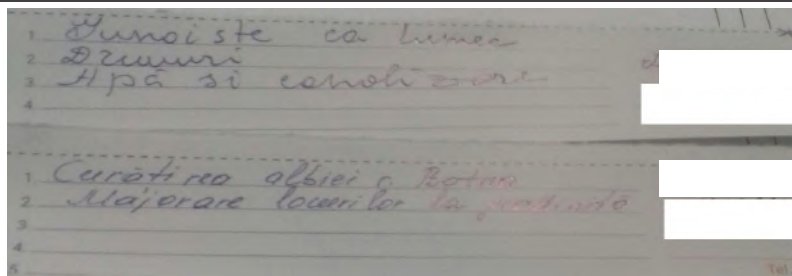 1 Gunoiste ca lumea
2 Drumuri
3 Apă si canalizare
4
1 Curătirea albiei r. Botna
2 Majorare locurilor la grădiniță
3
4
5
Tel